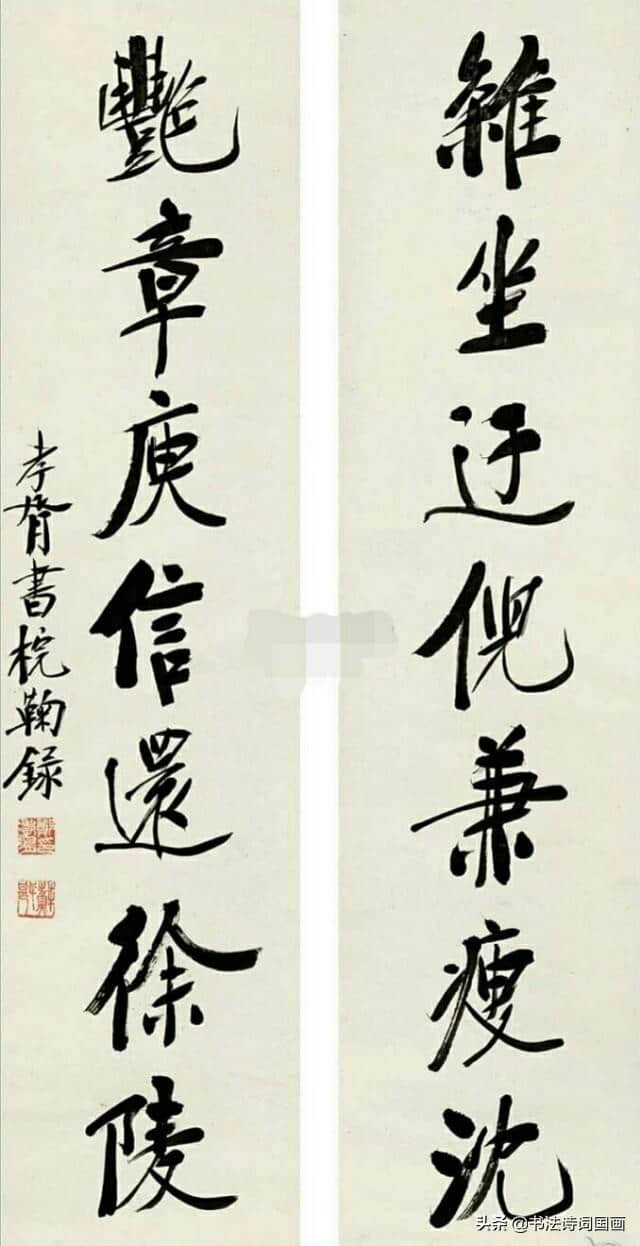 雜坐迂倪兼瘦沈
艷章庾信還徐陵
孝胥書梡鞠録
头条 @书法诗词国画